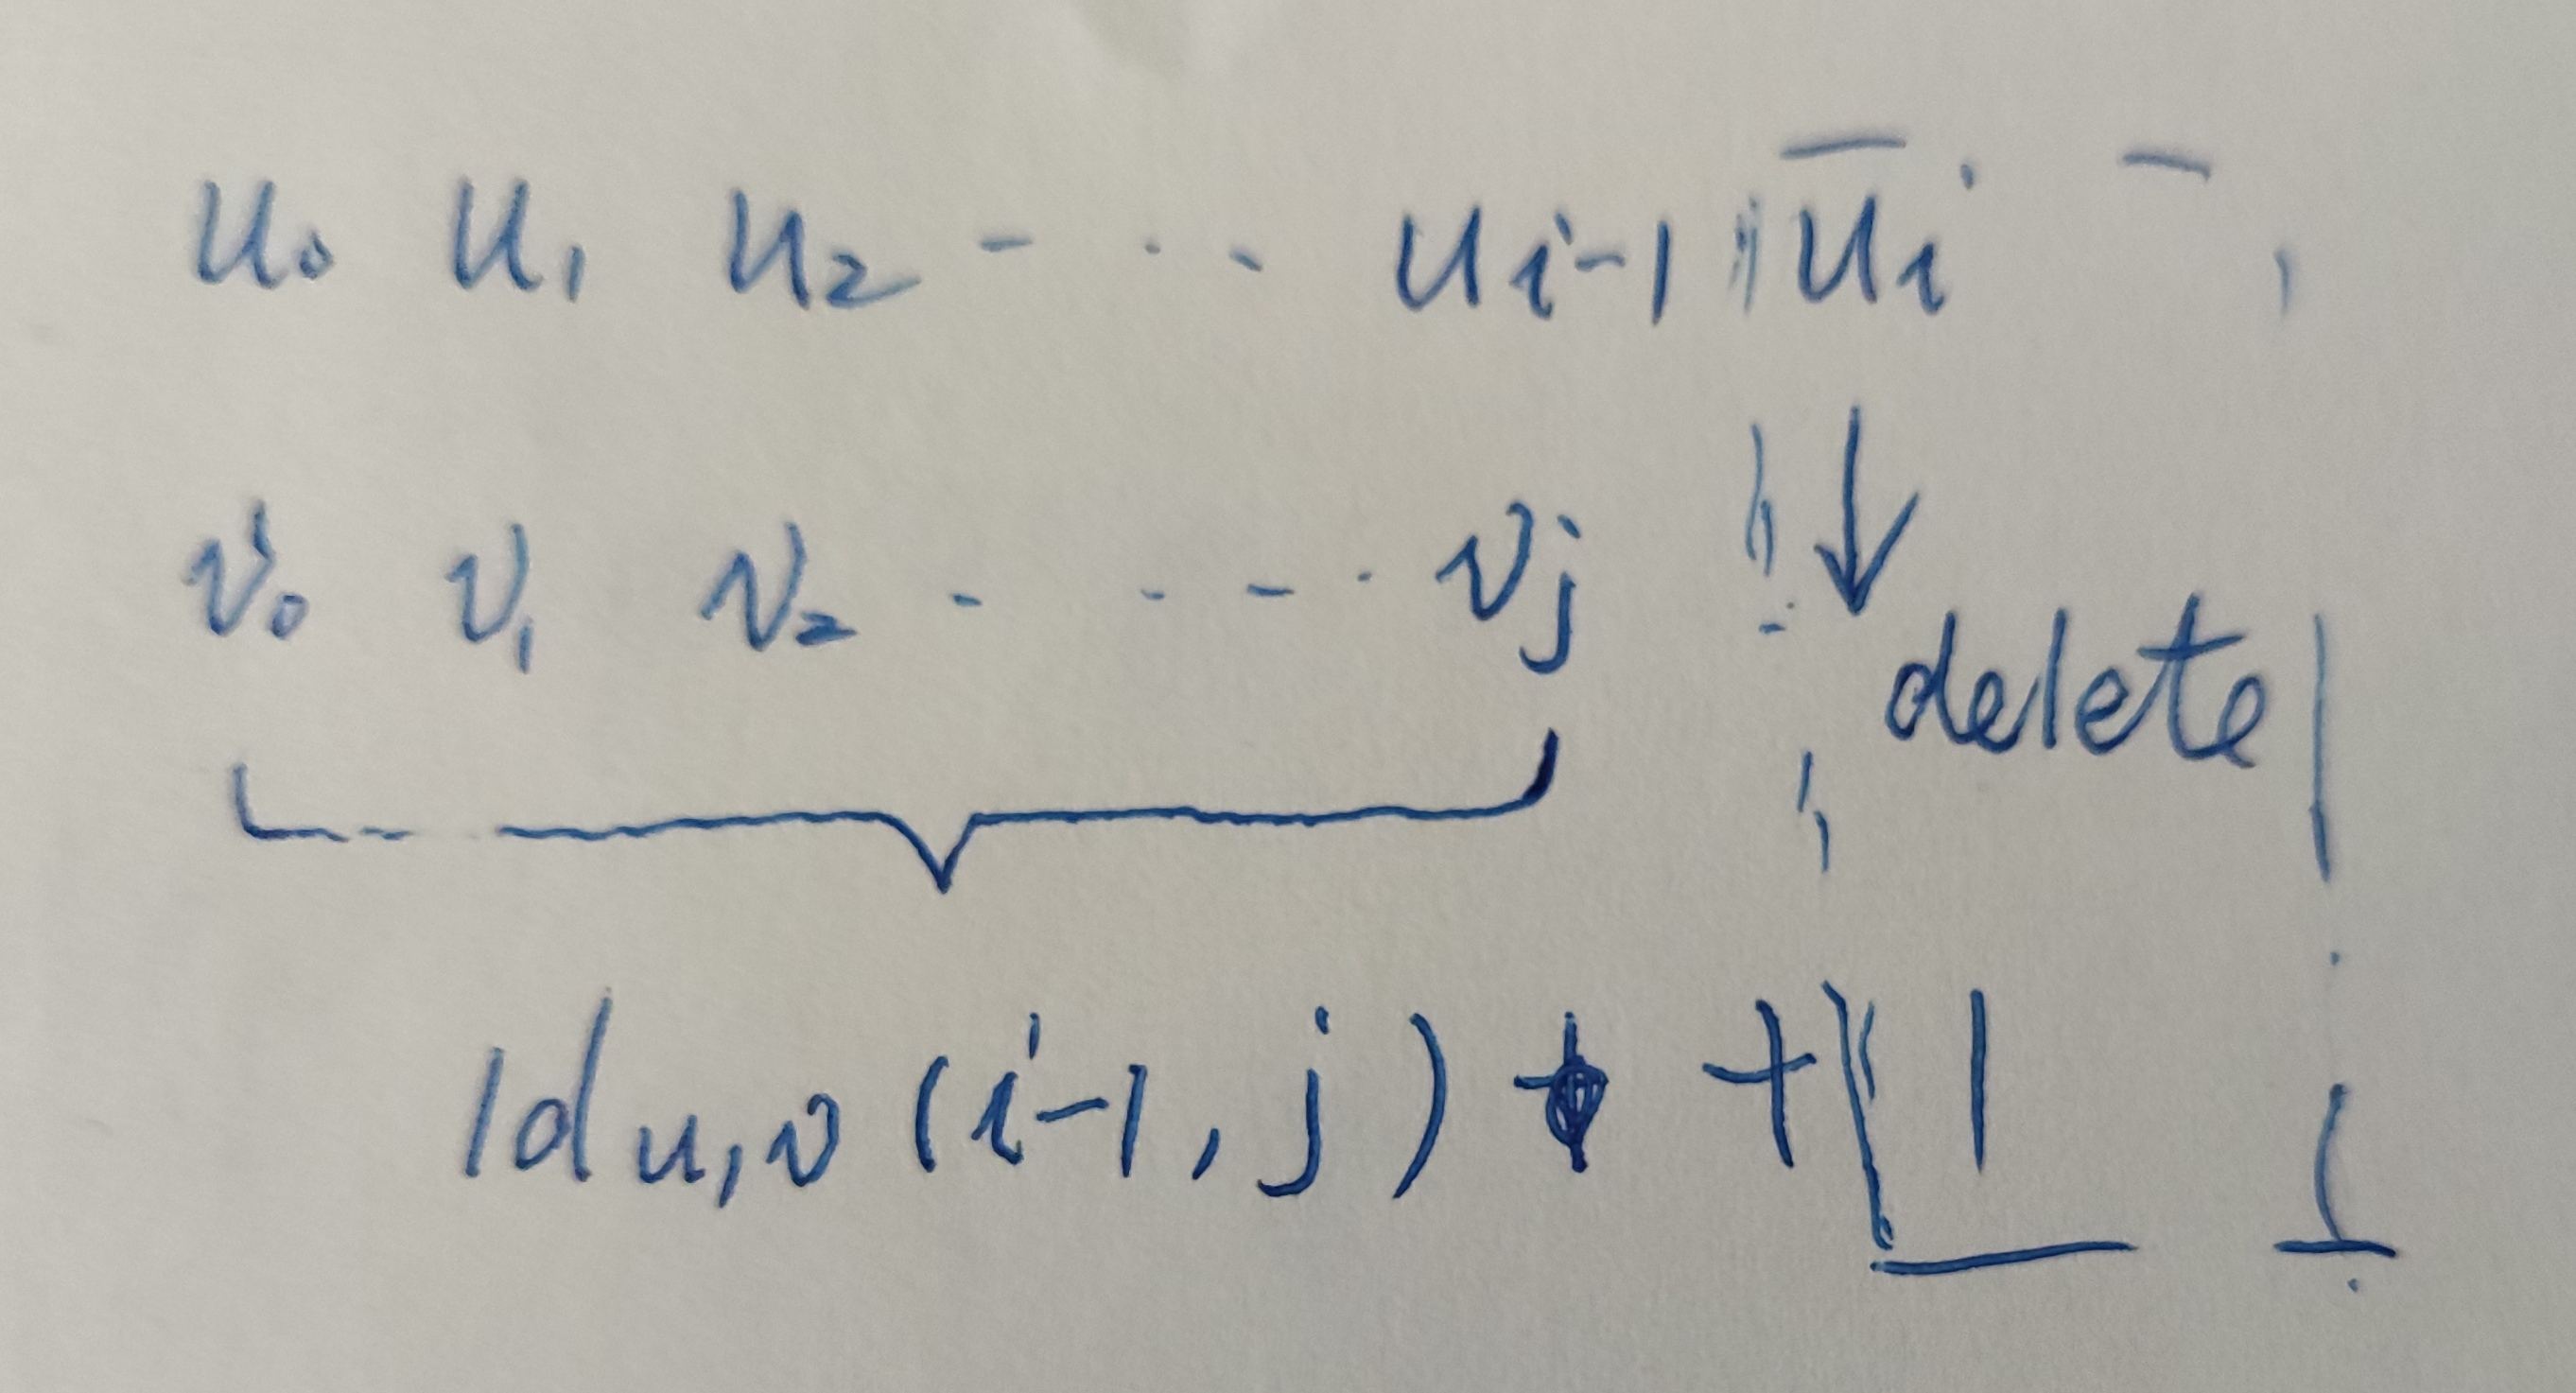 u₀ u₁ u₂ - · · - uᵢ₋₁ uᵢ
v₀ v₁ v₂ - · - - · vⱼ
delete
ld u,v (i-1, j) + 1